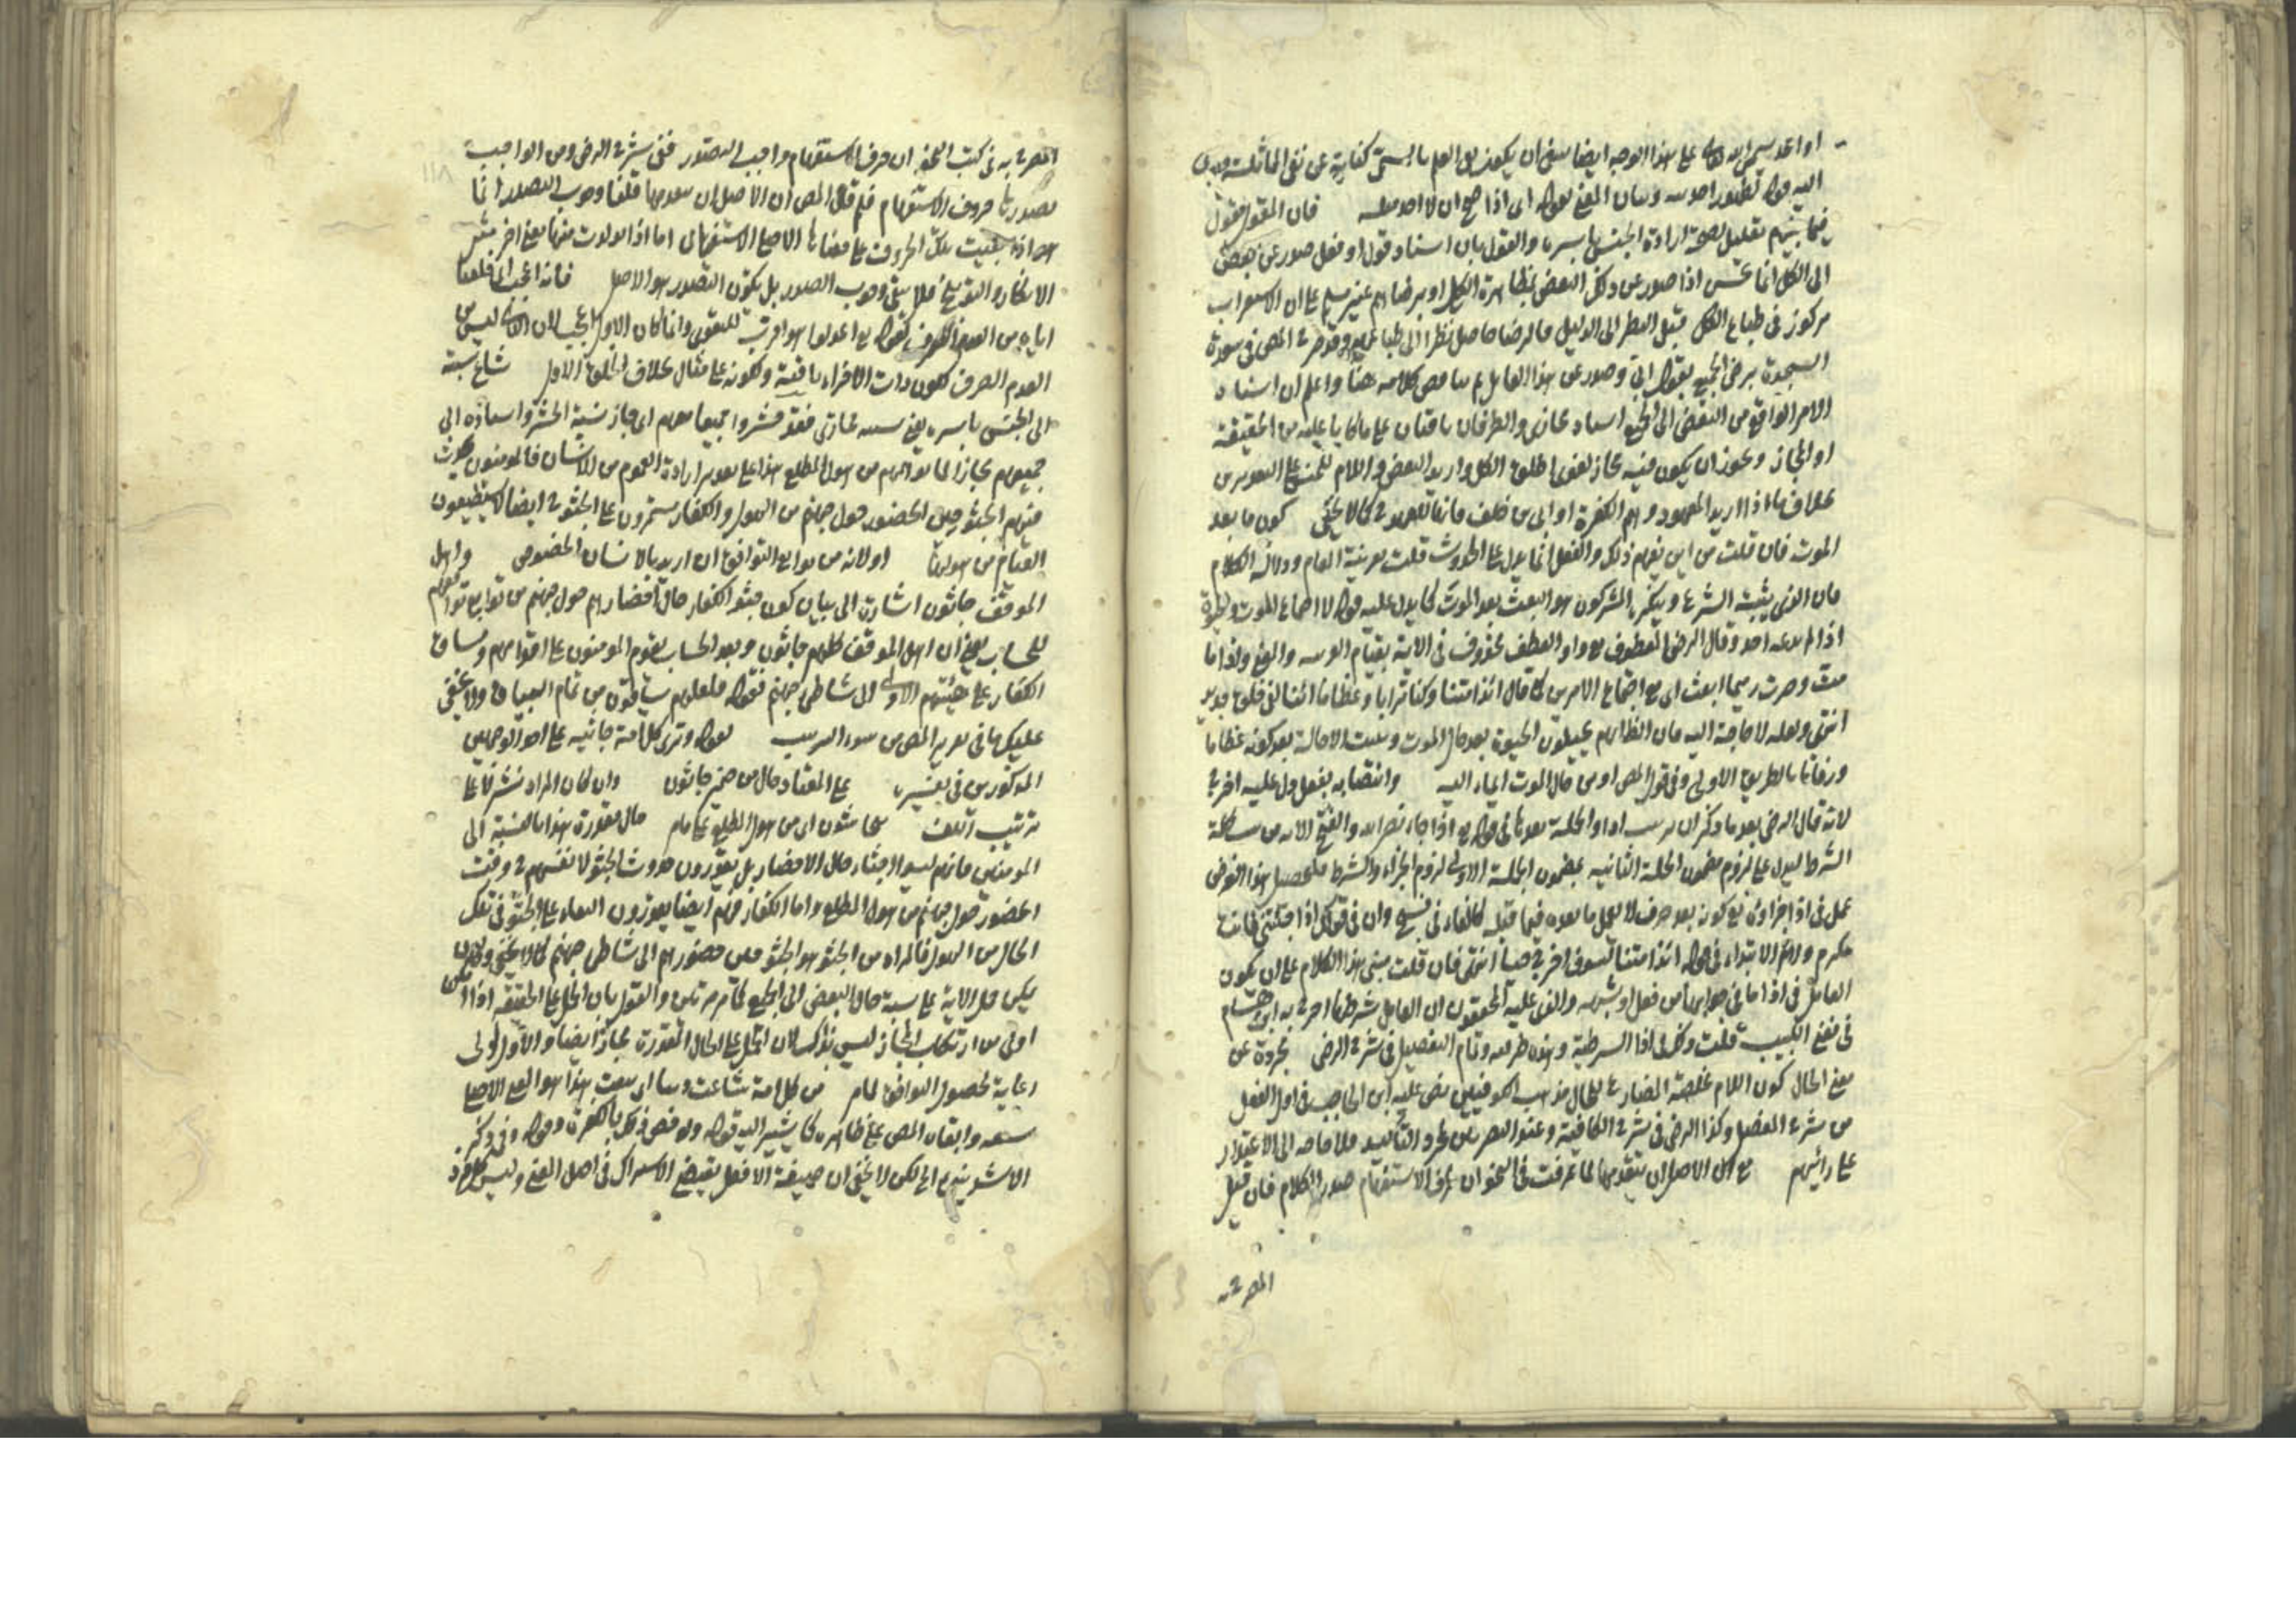 او احد يسمى الله على هذا الوجه ايضا ان يكون العلم بالسمى كناية عن نفى المماثلة
اليه قوله لظهور احديته وبيان المعنى بقوله اى اذا صح ان لا احد مثله فان المقول مقول
فيما بينهم تعليل لصحة ارادة الجنس باسره والقول بان اسناد قول او فعل صدر عن بعض
الى الكل انما يحسن اذا صدر عن ذلك البعض بمظاهرة الكل او برضاهم غير مسلم على ان الاستغراب
مركوز فى طباع الكل قبل النظر الى الدليل فالرضا حاصل نظرا الى طباعهم وقد صرح المص فى سورة
السجدة برضى الجميع بقول ابى وصدر عن هذا القائل كلامه هنا واعلم ان اسناد
الامر الواقع من البعض الى الجميع اسناد مجازى والطرفان باقيان على ما كانا عليه من الحقيقة
او المجاز ويجوز ان يكون فيه مجاز لغوى اطلق الكل واريد البعض واللام للجنس على
بخلاف ما اذا اريد المعهود وهم الكفرة او ابى بن خلف فانها للعهد كما لا يخفى كون ما بعد
الموت فان قلت من اين يفهم ذلك والفعل انما يدل على الحدوث قلت بقرينة المقام ودلالة الكلام
فان الذى يثبته الشرع وينكره المشركون هو البعث بعد الموت كما يدل عليه قوله لاجتماع الموت والحيوة
اذا لم احد وقال الرضى المعطوف مع واو العطف محذوف فى الاية بقيام والمعنى ائذا ما
مت وصرت رميما ابعث اى مع اجتماع الامرين كما قال ائذا متنا وكنا ترابا وعظاما ائنا لفى خلق جديد
انتهى ولعله لا حاجة اليه فان الظاهر انهم يحيلون الحيوة بعد حال الموت وثبت الاحالة بعد كونه عظاما
ورفاتا بالطريق الاولى وفى قول المص او من حال الموت ايماء اليه وانتصابه بفعل دل عليه اخرج
لانه قال الرضى بعد ما ذكر ان اذا والجملة بعدها فى قوله اذا جاء نصر الله والفتح الاية
الشرط ليدل على لزوم مضمون الجملة الثانية بمضمون الجملة الاولى لزوم الجزاء والشرط فلتحصيل هذا الغرض
عمل فى اذا جزاؤه مع كونه بعد حرف لا يعمل ما بعده فيما قبله كالفاء فى فسبح وان فى قولك اذا جئتنى فانك
مكرم ولام الابتداء فى قوله ائذا متنا لسوف اخرج حيا انتهى فان قلت مبنى هذا الكلام على ان يكون
العامل فى اذا ما فى جوابها من فعل او شبهه والذى عليه المحققون ان العامل شرطها صرح به ابن هشام
فى مغنى اللبيب قلت وذلك فى اذا الشرطية وهذه ظرفية وتمام التفصيل فى شرح الرضى مجردة عن
معنى الحال كون اللام مخلصة المضارع للحال مذهب الكوفيين نص عليه ابن الحاجب فى اول الفعل
من شرح المفصل وكذا الرضى فى شرح الكافية وعند البصريين لمجرد التأكيد فلا حاجة الى الاعتذار
على رايهم مع ان الاصل ان يتقدمها لما عرفت فى النحو ان لحرف الاستفهام صدر الكلام فان قيل
المصرح به
المصرح به فى كتب النحو ان حرف الاستفهام واجب التصدر ففى شرح الرضى ومن الواجب
تصدرها حروف الاستفهام فلم قال المص ان الاصل ان يتقدمها قلنا وجوب التصدر انما
هو اذا بقيت تلك الحروف على معناها الاصلى الاستفهامى اما اذا تولدت منها معنى اخر مثل
الانكار والتوبيخ فلا يبقى وجوب الصدر بل يكون التصدر هو الاصل فانه اعجب اى خلقنا
اياه من العدم الصرف كقوله اعدلوا هو اقرب للتقوى وانما كان الاول اعجب لان الثانى ليس من
العدم الصرف لكون ذات الاجزاء باقية ولكونه على مثال بخلاف الخلق الاول شاع نسبته
الى الجنس باسره يعنى نسبة مجازى فقد حشروا جميعا معهم اى جاز نسبة الحشر واسناده الى
جميعهم مجازا لما من هول المطلع هذا على تقدير ارادة العموم من الانسان فالمؤمنون يحدث
منهم الجثو حين الحضور حول جهنم من الهول والكفار مستمرون على الجثو ايضا لا يستطيعون
القيام من هولها اولانه من توابع التوافق ان اريد بالانسان الخصوص واهل
الموقف جاثون اشارة الى بيان كون جثو الكفار حال احضارهم حول جهنم من توابع تواقفهم
للحساب يعنى ان اهل الموقف كلهم جاثون وبعد الحساب يقوم المؤمنون على اقدامهم ويساق
الكفار على هيئتهم الاولى الى شاطى جهنم فقوله فلعلهم يساقون من تمام البيان ولا يخفى
عليك ما فى تقرير المص من سوء الترتيب لقوله وترى كل امة جاثية على احد الوجهين
المذكورين فى تفسيره على المعتاد حال من ضمير جاثون وان كان المراد نشر لا على
ترتيب اللف يتجاثون اى من هول المطلع كما مر حال مقدرة هذا بالنسبة الى
المؤمنين فانهم ليسوا جثاء حال الاحضار بل يقدرون حدوث الجثو لانفسهم وقت
الحضور حول جهنم من هول المطلع واما الكفار فهم ايضا يقدرون البقاء على الجثو فى تلك
الحال من الهول فالمراد من الجثو هو الجثو حين حضورهم الى شاطى جهنم كما لا يخفى
يمكن حمل الاية على نسبة حال البعض الى الجميع كما مر مرتين والقول بان الحمل على الحقيقة اذا امكن
اولى من ارتكاب المجاز ليس بذاك لان الحمل على الحال المقدرة مجاز ايضا والاول اولى
رعاية لحصول التوافق من كل امة شاعت دينا اى تبعت هذا هو المعنى الاصلى
وابقاه المص على ظاهره كما يشير اليه قوله ولو خص ذلك بالكفرة وقوله وفى ذكر
الاشد تنبيه الى لكن لا يخفى ان صيغة الافعل يقتضى الاشتراك فى اصل المعنى وليس كل فرد